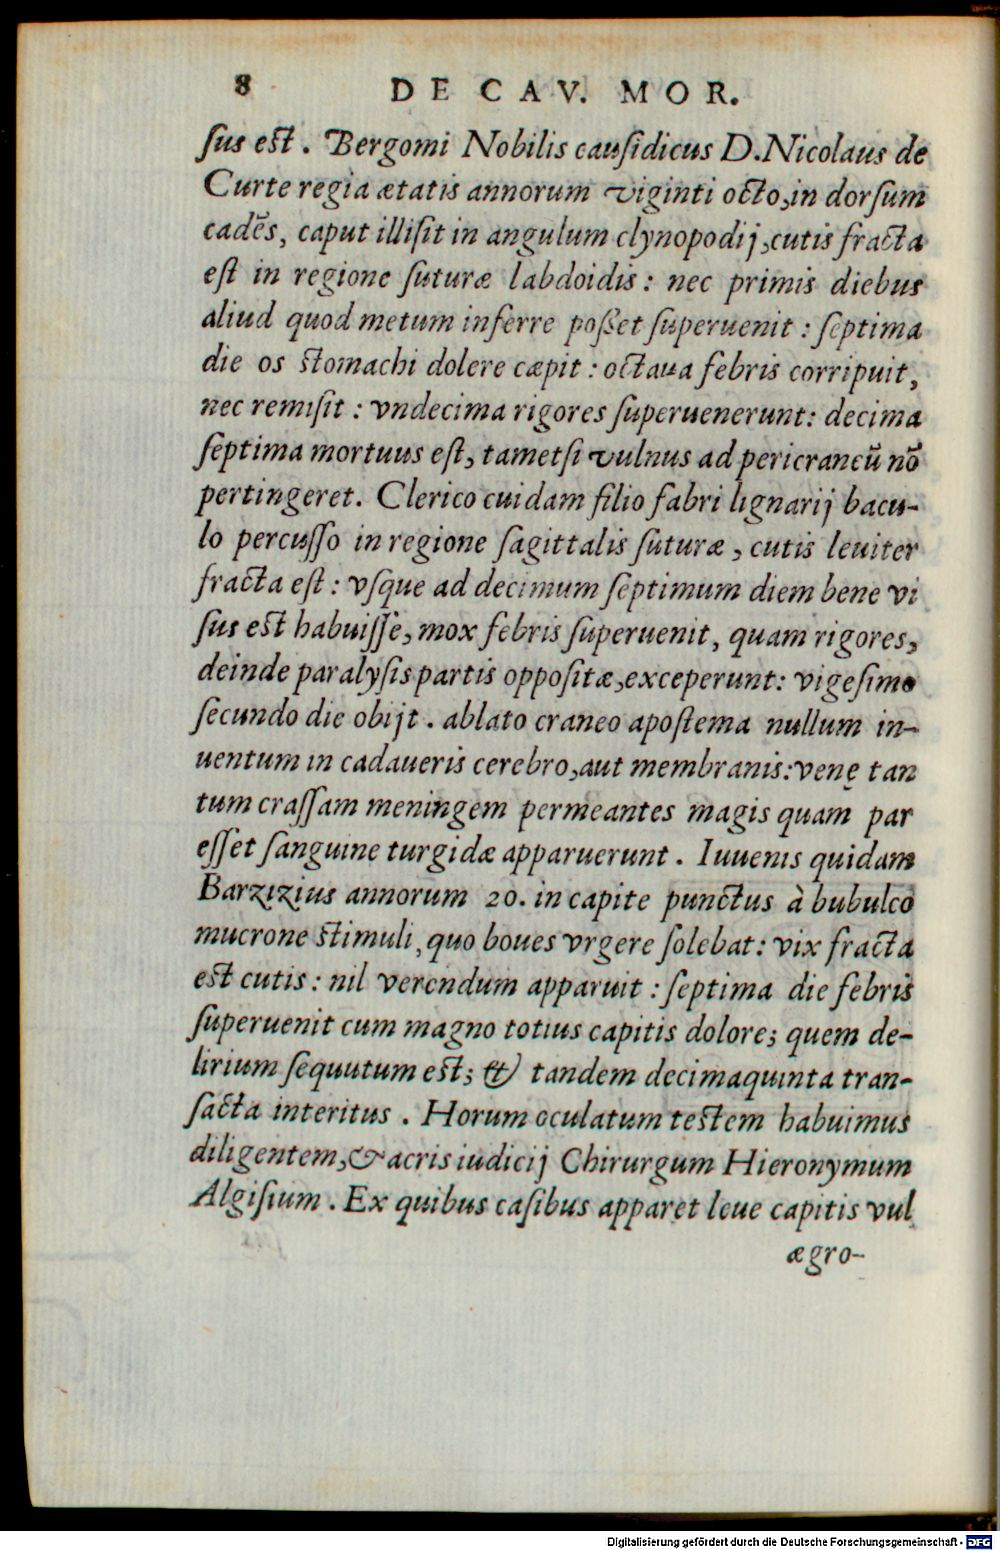 8 DE CAV. MOR.
ſus est. Bergomi Nobilis cauſidicus D.Nicolaus de
Curte regia ætatis annorum viginti octo, in dorſum
cadēs, caput illiſit in angulum clynopodij, cutis fracta
eſt in regione ſuturæ labdoidis: nec primis diebus
aliud quod metum inferre poßet ſuperuenit: ſeptima
die os stomachi dolere cæpit: octaua febris corripuit,
nec remiſit: vndecima rigores ſuperuenerunt: decima
ſeptima mortuus eſt, tametſi vulnus ad pericraneū nō
pertingeret. Clerico cuidam filio fabri lignarij bacu-
lo percuſſo in regione ſagittalis ſuturæ, cutis leuiter
fracta eſt: vſque ad decimum ſeptimum diem bene vi
ſus est habuiſſe, mox febris ſuperuenit, quam rigores,
deinde paralyſis partis oppoſitæ, exceperunt: vigeſimo
ſecundo die obijt. ablato craneo apoſtema nullum in-
uentum in cadaueris cerebro, aut membranis: venę tan
tum craſſam meningem permeantes magis quam par
eſſet ſanguine turgidæ apparuerunt. Iuuenis quidam
Barzizius annorum 20. in capite punctus à bubulco
mucrone stimuli, quo boues vrgere ſolebat: vix fracta
est cutis: nil verendum apparuit: ſeptima die febris
ſuperuenit cum magno totius capitis dolore; quem de-
lirium ſequutum est; & tandem decimaquinta tran-
ſacta interitus. Horum oculatum testem habuimus
diligentem, & acris iudicij Chirurgum Hieronymum
Algiſium. Ex quibus caſibus apparet leue capitis vul
ægro-
Digitalisierung gefördert durch die Deutsche Forschungsgemeinschaft - DFG